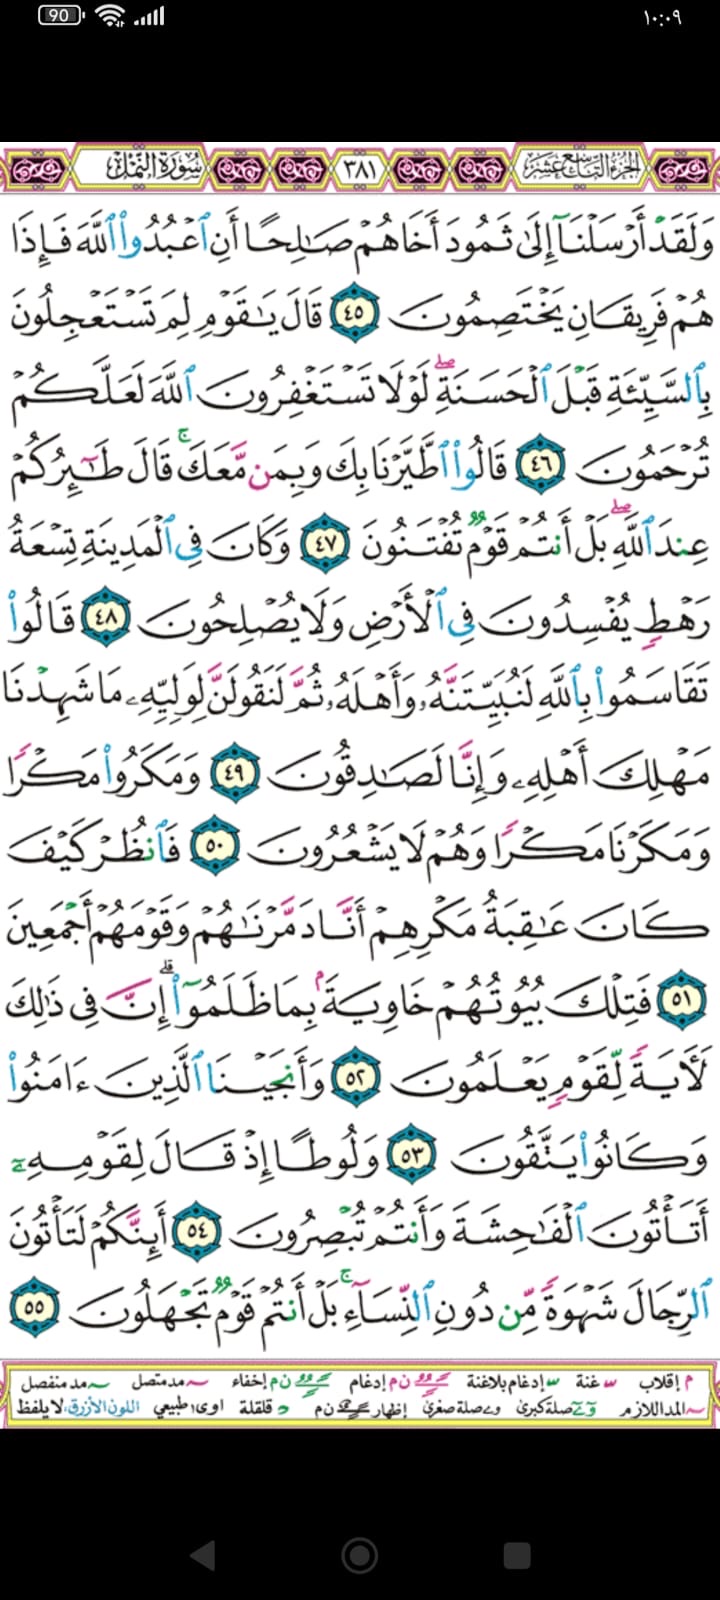 90
١٠:٠٩
الجزء التاسع عشر
٣٨١
سورة النمل
وَلَقَدْ أَرْسَلْنَآ إِلَىٰ ثَمُودَ أَخَاهُمْ صَـٰلِحًا أَنِ ٱعْبُدُوا۟ ٱللَّهَ فَإِذَا
هُمْ فَرِيقَانِ يَخْتَصِمُونَ ٤٥ قَالَ يَـٰقَوْمِ لِمَ تَسْتَعْجِلُونَ
بِٱلسَّيِّئَةِ قَبْلَ ٱلْحَسَنَةِ ۖ لَوْلَا تَسْتَغْفِرُونَ ٱللَّهَ لَعَلَّكُمْ
تُرْحَمُونَ ٤٦ قَالُوا۟ ٱطَّيَّرْنَا بِكَ وَبِمَن مَّعَكَ ۚ قَالَ طَـٰٓئِرُكُمْ
عِندَ ٱللَّهِ ۖ بَلْ أَنتُمْ قَوْمٌ تُفْتَنُونَ ٤٧ وَكَانَ فِى ٱلْمَدِينَةِ تِسْعَةُ
رَهْطٍ يُفْسِدُونَ فِى ٱلْأَرْضِ وَلَا يُصْلِحُونَ ٤٨ قَالُوا۟
تَقَاسَمُوا۟ بِٱللَّهِ لَنُبَيِّتَنَّهُۥ وَأَهْلَهُۥ ثُمَّ لَنَقُولَنَّ لِوَلِيِّهِۦ مَا شَهِدْنَا
مَهْلِكَ أَهْلِهِۦ وَإِنَّا لَصَـٰدِقُونَ ٤٩ وَمَكَرُوا۟ مَكْرًا
وَمَكَرْنَا مَكْرًا وَهُمْ لَا يَشْعُرُونَ ٥٠ فَٱنظُرْ كَيْفَ
كَانَ عَـٰقِبَةُ مَكْرِهِمْ أَنَّا دَمَّرْنَـٰهُمْ وَقَوْمَهُمْ أَجْمَعِينَ
٥١ فَتِلْكَ بُيُوتُهُمْ خَاوِيَةًۢ بِمَا ظَلَمُوٓا۟ ۗ إِنَّ فِى ذَٰلِكَ
لَـَٔايَةً لِّقَوْمٍ يَعْلَمُونَ ٥٢ وَأَنجَيْنَا ٱلَّذِينَ ءَامَنُوا۟
وَكَانُوا۟ يَتَّقُونَ ٥٣ وَلُوطًا إِذْ قَالَ لِقَوْمِهِۦٓ
أَتَأْتُونَ ٱلْفَـٰحِشَةَ وَأَنتُمْ تُبْصِرُونَ ٥٤ أَئِنَّكُمْ لَتَأْتُونَ
ٱلرِّجَالَ شَهْوَةً مِّن دُونِ ٱلنِّسَآءِ ۚ بَلْ أَنتُمْ قَوْمٌ تَجْهَلُونَ ٥٥
م إقلاب غنة إدغام بلاغنة ن م إدغام ن م إخفاء مد متصل مد منفصل
المد اللازم صلة كبرى صلة صغرى إظهار ن م قلقلة اوى طبيعي اللون الأزرق:لا يلفظ